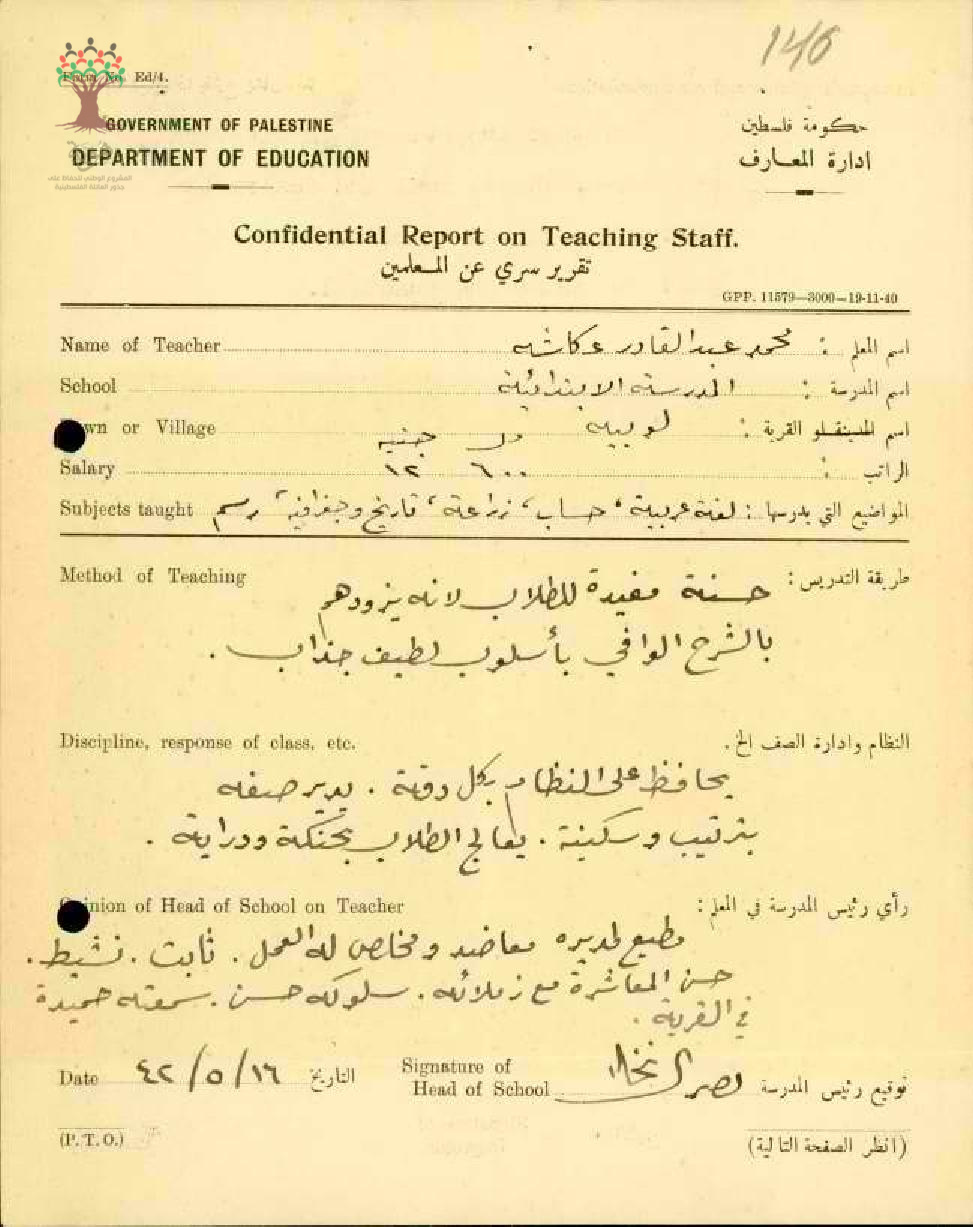 146
Form No. Ed/4.
GOVERNMENT OF PALESTINE
حكومة فلسطين
DEPARTMENT OF EDUCATION
ادارة المعارف
المشروع الوطني للحفاظ على
جذور العائلة الفلسطينية
Confidential Report on Teaching Staff.
تقرير سري عن المعلمين
GPP. 11579—3000—19-11-40
Name of Teacher محمد عبد القادر عكاشه اسم المعلم :
School المدرسة الابتدائية اسم المدرسة :
Town or Village لوبيه اسم المدينة او القرية :
مل جنيه
Salary ٦٠٠ ١٢ الراتب :
Subjects taught المواضيع التي يدرسها : لغة عربية، حساب، زراعة، تاريخ وجغرافية، رسم
Method of Teaching طريقة التدريس :
حسنة مفيدة للطلاب لانه يزودهم
بالشرح الوافي بأسلوب لطيف جذاب .
Discipline, response of class, etc. النظام وادارة الصف الخ.
يحافظ على النظام بكل دقة . يدير صفه
بترتيب وسكينة . يعالج الطلاب بحنكة ودراية .
Opinion of Head of School on Teacher رأي رئيس المدرسة في المعلم :
مطيع لمديره معاضد ومخلص له العمل . ثابت . نشيط .
حسن المعاشرة مع زملائه . سلوكه حسن . سمعته حميدة
في القرية .
Date ١٦/٥/٤٢ التاريخ Signature of
Head of School نصر النخال توقيع رئيس المدرسة
(P. T. O.) (انظر الصفحة التالية)